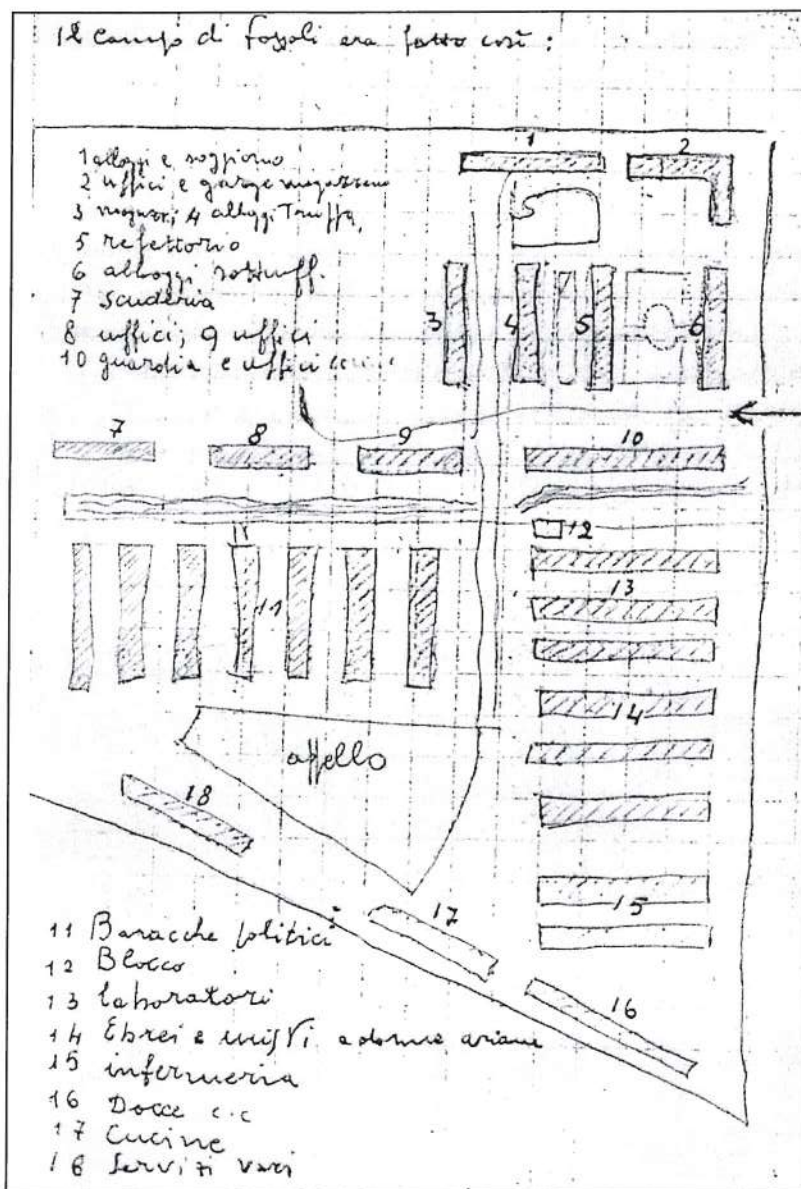 Il Campo di Fossoli era fatto così:
1 alloggi e soggiorno
2 uffici e garage magazzeno
3 magazzi; 4 alloggi Truffa,
5 refettorio
6 alloggi sottuff.
7 Scuderia
8 uffici; 9 uffici
10 guardia e uffici
1
2
3
4
5
6
7
8
9
10
11
12
11
13
14
appello
18
15
17
16
11 Baracche politici
12 Blocco
13 laboratori
14 Ebrei e misti e donne ariane
15 infermeria
16 Docce c.c
17 Cucine
18 Servizi vari